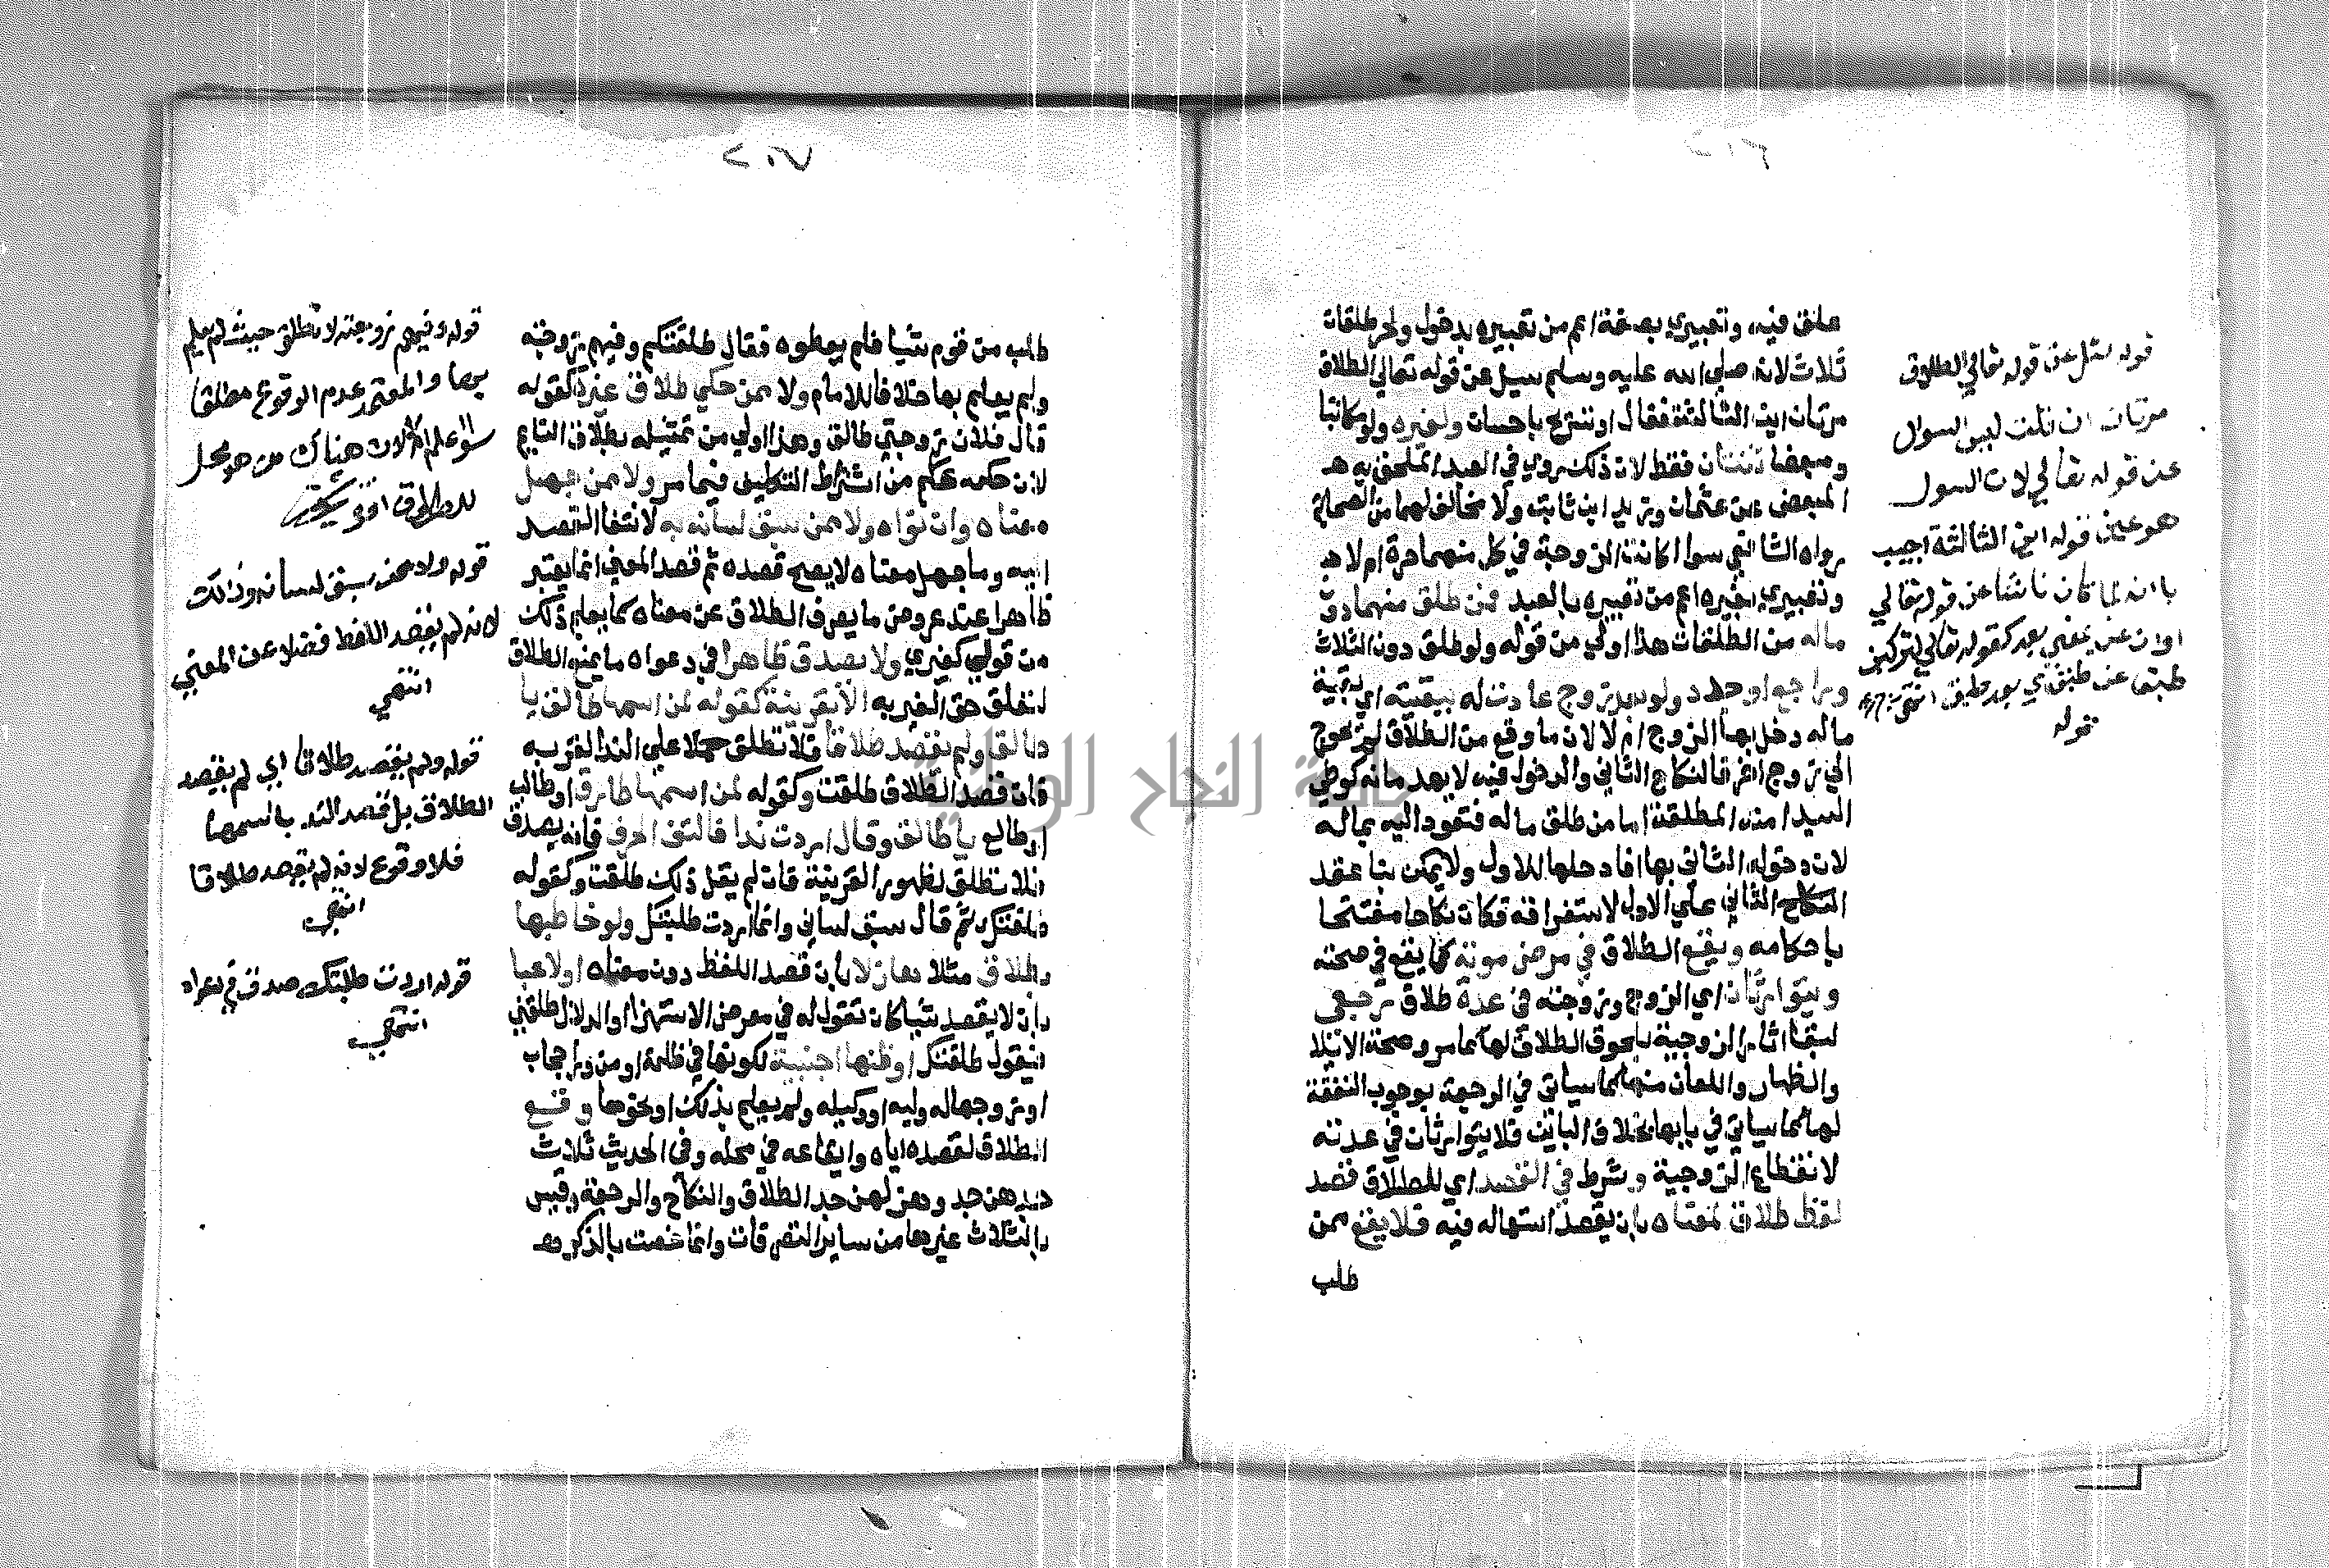 علق فيه، وتعبيري بصفة اعم من تعبيره بدخول ولحر طلقات
ثلاث لانه صلى الله عليه وسلم سيل عن قوله تعالى الطلاق
مرتان اين الثالثة فقال او تسريح باحسان ولغيره ولو مكاتبا
ومبعضا ثنتان فقط لان ذلك روي في العبد الملحق به
المبعض عن عثمان وزيد ابن ثابت ولا مخالف لهما من الصحابة
رواه الشافعي سوا كانت الزوجة في كل منهما حرة ام لا
وتعبيري بغيره اعم من تعبيره بالعبد فمن طلق منهما دون
ماله من الطلقات هذا اولى من قوله ولو طلق دون الثلاث
وراجع او جدد ولو بعد زوج عادت له ببقيته اي بقية
ماله دخل بها الزوج ام لا لان ما وقع من الطلاق لم يحوج
الى زوج اخر فالنكاح الثاني والدخول فيه لا يهدمانه كوطي
السيد امته المطلقة اما من طلق ماله فتعود اليه بماله
لان دخول الثاني بها افاد حلها للاول ولا يمكن بنا عقد
النكاح الثاني على الاول لاستغراقه فكان نكاحا مفتتحا
باحكامه ويقع الطلاق في مرض موته كما يقع في صحته
ويتوارثان اي الزوج وزوجته في عدة طلاق رجعي
لبقا اثار الزوجية بلحوق الطلاق لها كما مر وصحة الايلا
والظهار واللعان منها كما سياتي في الرجعة بوجوب النفقة
لها كما سياتي في بابها بخلاف البائن فلا يتوارثان في عدته
لانقطاع الزوجية وشرط في القصد اي للطلاق قصد
لفظ طلاق لمعناه بان يقصد استعماله فيه فلا يقع ممن
طلب
قوله سئل عن قوله تعالى الطلاق
مرتان ان قلت ليس السوال
عن قوله تعالى لان السول
هو عين قوله اين الثالثة اجيب
بانه لما كان ناشا عن قوله تعالى
او ان عن بمعنى بعد كقوله تعالى لتركبن
طبقا عن طبق اي بعد طبق انتهى
قوله
طلب من قوم شيا فلم يعطوه فقال طلقتكم وفيهم زوجته
ولم يعلم بها خلافا للامام ولا ممن حكى طلاق غيره كقوله
قال فلان زوجتي طالق وهذا اولى من تمثيله بطلاق النايم
لان حكمه علم من اشتراط التكليف فيما مر ولا ممن جهل
معناه وان نواه ولا ممن سبق لسانه به لانتفا القصد
اليه وما جهل معناه لا يصح قصده ثم قصد المعنى انما يعتبر
ظاهرا عند عروض ما يصرف الطلاق عن معناه كما يعلم ذلك
من قولي كغيري ولا يصدق ظاهرا في دعواه ما يمنع الطلاق
لتعلق حق الغير به الا بقرينة كقوله لمن اسمها طالق يا
طالق ولم يقصد طلاقا فلا تطلق حملا على الندا لقربه
فان قصد الطلاق طلقت وكقوله لمن اسمها طارق او طالب
او طالع يا طالق وقال اردت ندا فالتف الحرف فانه يصدق
فلا تطلق لظهور القرينة فان لم يقل ذلك طلقت وكقوله
طلقتك ثم قال سبق لساني وانما اردت طلبتك ولو خاطبها
بطلاق مثلا هازلا بان قصد اللفظ دون معناه او لاعبا
بان لا يقصد شيا كان تقول له في معرض الاستهزا او الدلال طلقني
فيقول طلقتك او ظنها اجنبية لكونها في ظلمة او من ورا حجاب
او زوجها له وليه او وكيله ولم يعلم بذلك او نحوها وقع
الطلاق لقصده اياه وايقاعه في محله وفي الحديث ثلاث
جدهن جد وهزلهن جد الطلاق والنكاح والرجعة وقيس
بالثلاث غيرها من ساير التصرفات وانما خصت بالذكر
قوله وفيهم زوجته لا تطلق حيث لم يعلم
بها والمعتمد عدم الوقوع مطلقا
سوا علم ام لا لان هناك من هو محل
للطلاق
قوله ولا ممن سبق لسانه وذلك
لانه لم يقصد اللفظ فضلا عن المعنى
انتهى
قوله ولم يقصد طلاقا اي لم يقصد
الطلاق بل قصد الندا باسمها
فلا وقوع لانه لم يقصد طلاقا
انتهى
قوله اردت طلبتك صدق في دعواه
انتهى
جامعة النجاح الوطنية